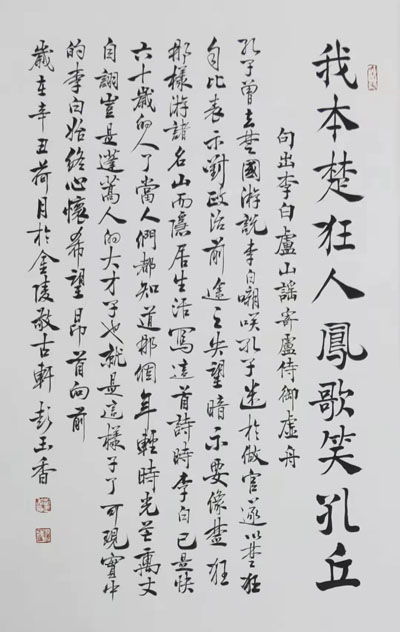 我本楚狂人鳳歌笑孔丘
句出李白盧山謠寄盧侍御虛舟
孔子曾去楚國游說李白嘲咲孔子迷於做官遂以楚狂
自比表示對政治前途之失望暗示要像楚狂
那樣游諸名山而隱居生活寫這首詩時李白已是快
六十歲的人了當人們都知道那個年輕時光芒萬丈
自詡豈是蓬蒿人的大才子也就是這樣子了可現實中
的李白始終心懷希望昂首向前
歲在辛丑荷月於金陵敬古軒彭玉香